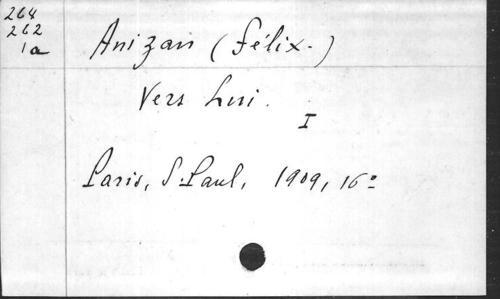 264
262
1a
Anizan (Félix.)
Vers Lui.
I
Paris, S. Paul, 1909, 16º